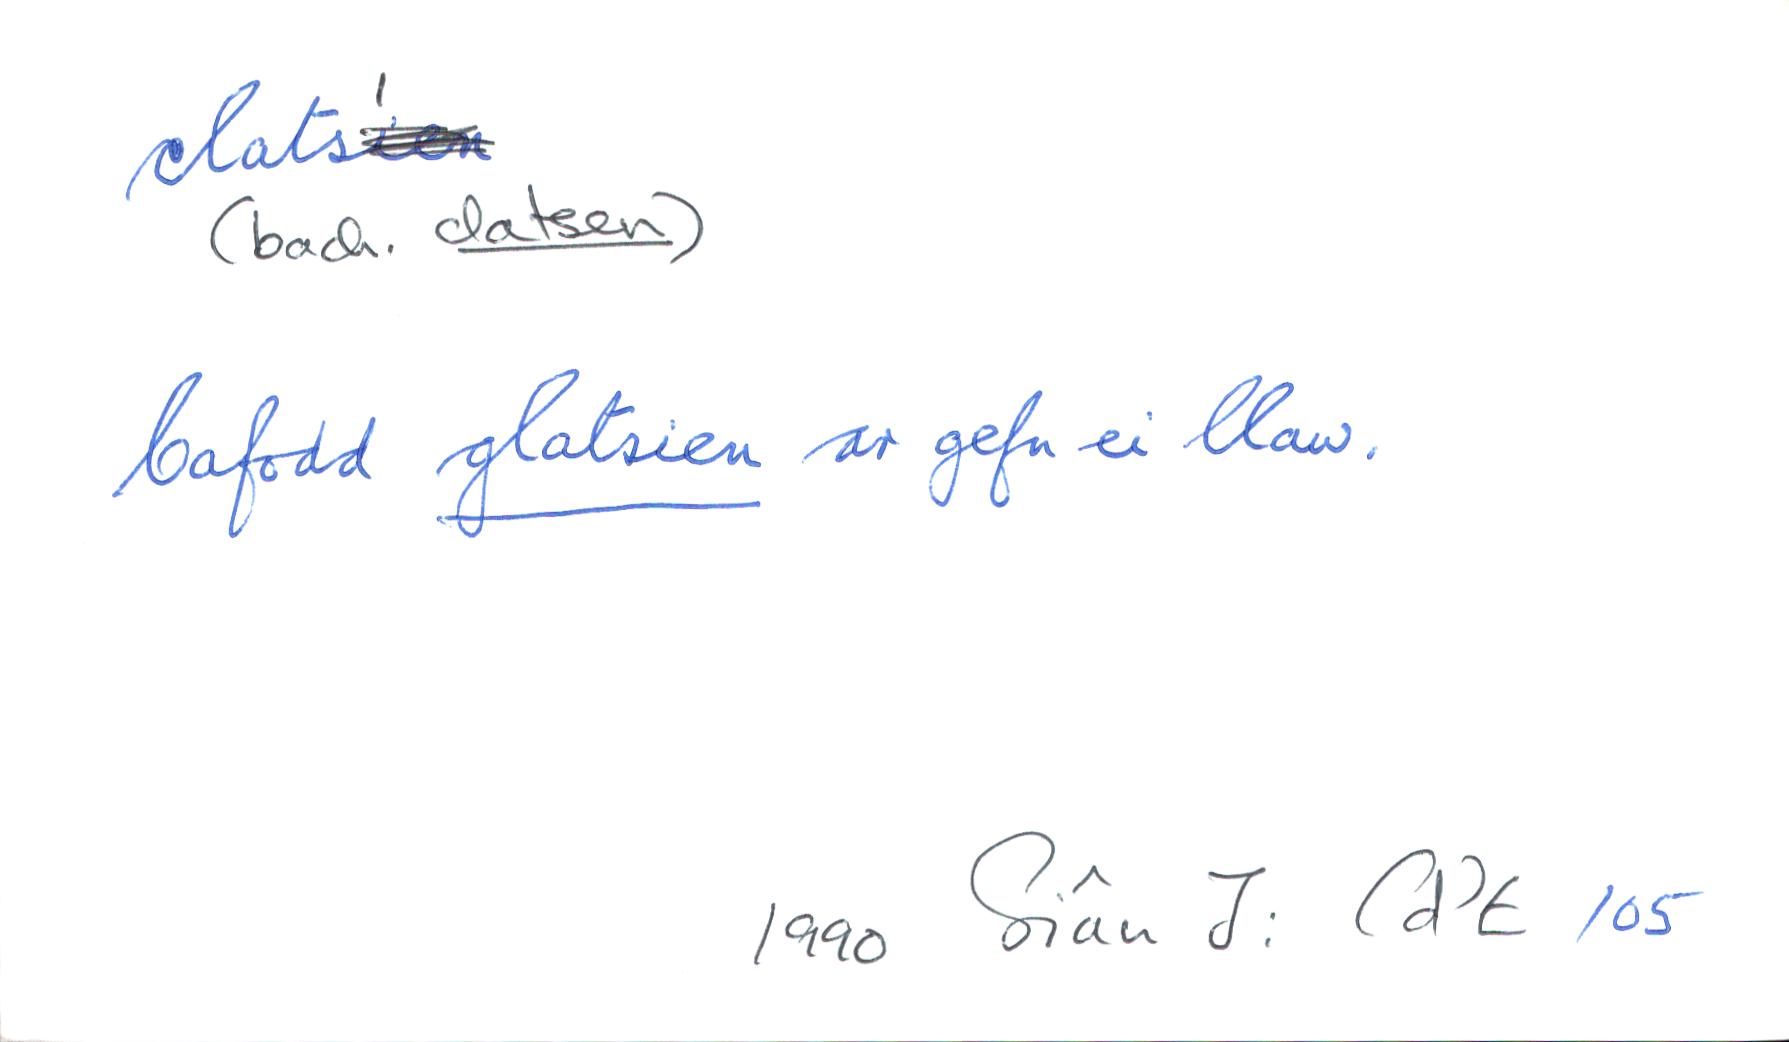 clats¹
(bach. clatsen)
Cafodd glatsien ar gefn ei llaw.
1990 Siân J: Cd'E 105